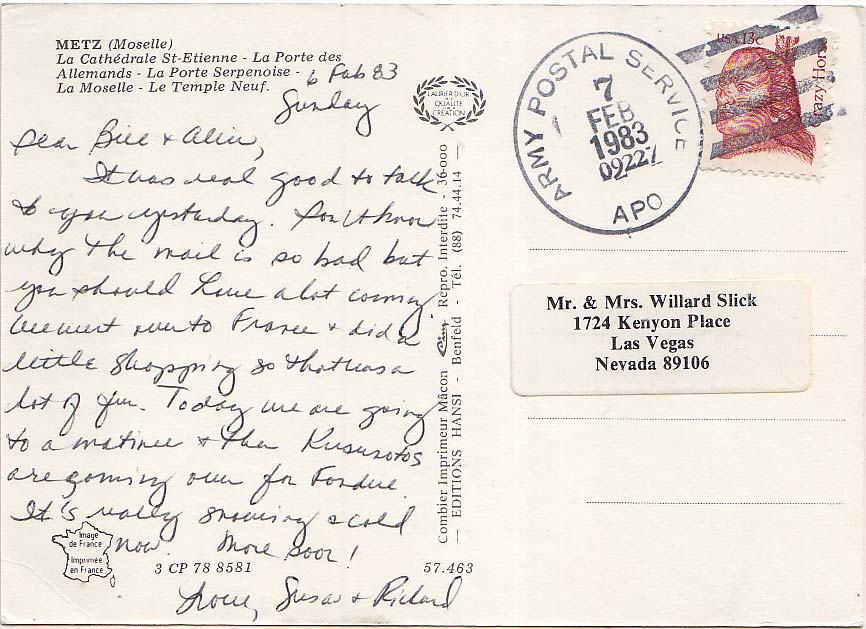 METZ (Moselle)
La Cathédrale St-Etienne - La Porte des
Allemands - La Porte Serpenoise -
La Moselle - Le Temple Neuf.
6 Feb 83
Sunday
Dear Bill + Alice,
It was real good to talk
to you yesterday. Don't know
why the mail is so bad but
you should have a lot coming
We went over to France + did a
little shopping so that was a
lot of fun. Today we are going
to a matinee + the
are coming over for Fondue.
It's really snowing & cold
now. More soon!
Love, Susan + Richard
LAURIER D'OR
QUALITE
CREATION
Combier Imprimeur Mâcon Cim Repro. Interdite - 36-000
— EDITIONS HANSI - Benfeld - Tél. (88) 74.44.14 —
Image
de France
Imprimée
en France
3 CP 78 8581
57.463
ARMY POSTAL SERVICE
7
FEB
1983
09227
APO
USA 13c
Crazy Horse
Mr. & Mrs. Willard Slick
1724 Kenyon Place
Las Vegas
Nevada 89106